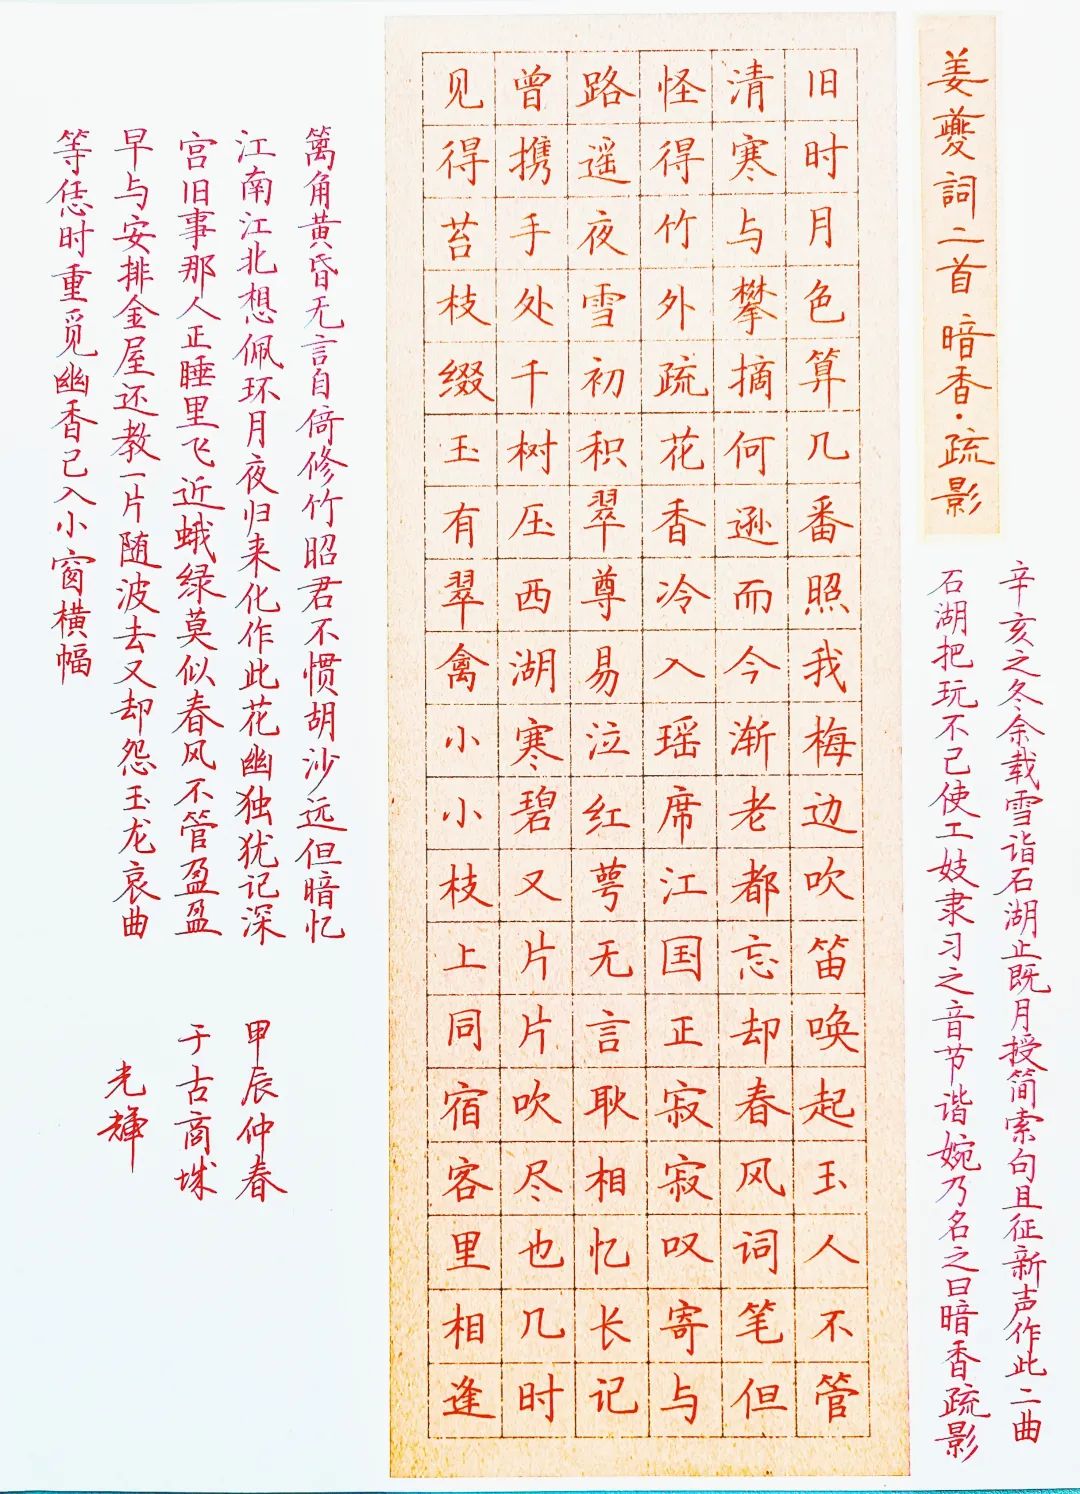 姜夔詞二首 暗香·疏影
辛亥之冬余载雪诣石湖止既月授简索句且征新声作此二曲
石湖把玩不已使工妓隶习之音节谐婉乃名之曰暗香疏影
旧时月色算几番照我梅边吹笛唤起玉人不管
清寒与攀摘何逊而今渐老都忘却春风词笔但
怪得竹外疏花香冷入瑶席江国正寂寂叹寄与
路遥夜雪初积翠尊易泣红萼无言耿相忆长记
曾携手处千树压西湖寒碧又片片吹尽也几时
见得苔枝缀玉有翠禽小小枝上同宿客里相逢
篱角黄昏无言自倚修竹昭君不惯胡沙远但暗忆
江南江北想佩环月夜归来化作此花幽独犹记深
宫旧事那人正睡里飞近蛾绿莫似春风不管盈盈
早与安排金屋还教一片随波去又却怨玉龙哀曲
等恁时重觅幽香已入小窗横幅
甲辰仲春
于古商城
光輝